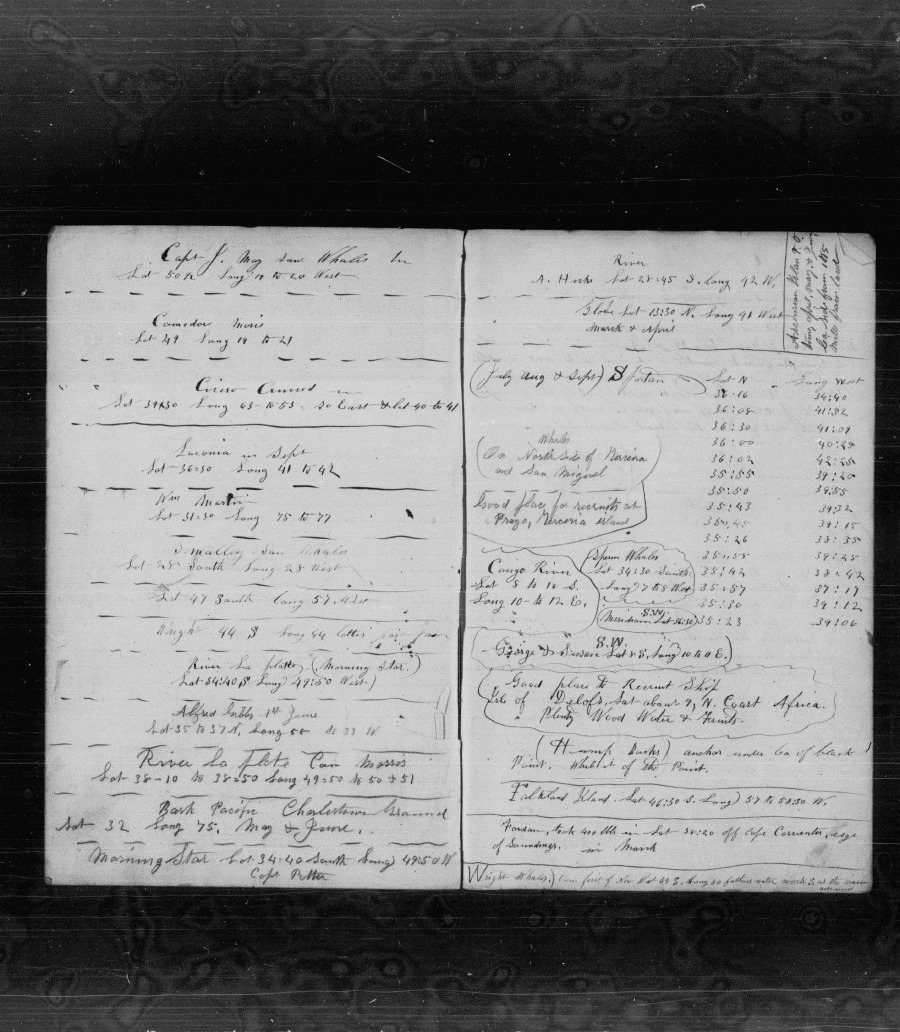 Capt J. May Saw Whales In
Lat 50 N Long 19 to 20 West
Comodore Moris
Lat 49 Long 19 to 21
Cruised
Lat 39:30 Long 63 to 53 So East & Lat 40 to 41
Laconia in Sept
Lat 36=30 Long 41 to 42
Wm Martin
Lat 31=30 Long 75 to 77
Smalley Saw Whales
Lat 28 South Long 28 West
Lat 47 South Long 57.
Wright 44 S Long 44
River La platte (Morning Star.)
Lat 34:40 S Long 49:50 West)
Alfred Gibbs 1st June
Lat 35 to 37 N, Long 58 to 33 W
River La Plete Com Morris
Lat 38-10 to 38=50 Long 49=50 to 50 & 51
Bark Pacific Charlestown Ground
Lat 32 Long 75, May & June.
Morning Star Lat 34:40 South Long 49:50 W
Capt
River
A. Hicks Lat 28:45 S. Long 42 W.
Globe Lat 13:30 N. Long 41 West
March & April
Ascension Island
april, may, & June
from
miles from land
(July Aug & Sept.) Spartan
Lat N Long West
36:16 34:40
36:08 41:32
36:30 41:09
36:00 40:28
36:02 42:25
35:55 39:20
35:50 39.55
35:43 39:32
35:45 39:15
35:26 38:35
35:58 38:25
35:42 38:42
35:57 37:17
35:30 39:12
35:23 39:06
Whales
On North side of
and San Miguel
Good place for recruits at
Praya, island
Congo River
Lat 5 to 10 S.
Long 10 to 12 E.
Sperm Whales
Lat 34:30 South
Long 7 to 8 West
S.W.
Meridian Lat 36:30
S.W.
George & Susan Lat 8 S, Long 10 to 11 E.)
Good place to Recruit Ship
Isle of Delofs, Lat about 9, N. Coast Africa.
Plenty Wood Water & Fruits.
(Hump Backs) anchor under lea of black
Point. of the Point.
Falkland Island. Lat 46:30 S. Long) 57 to 58:30 W.
took 400 bbl in Lat 38:20 off Cape Corrientes, edge
of Soundings. in March
Wright Whales.) first of Nov. Lat S. Long 50 fathoms water, work S. as the season